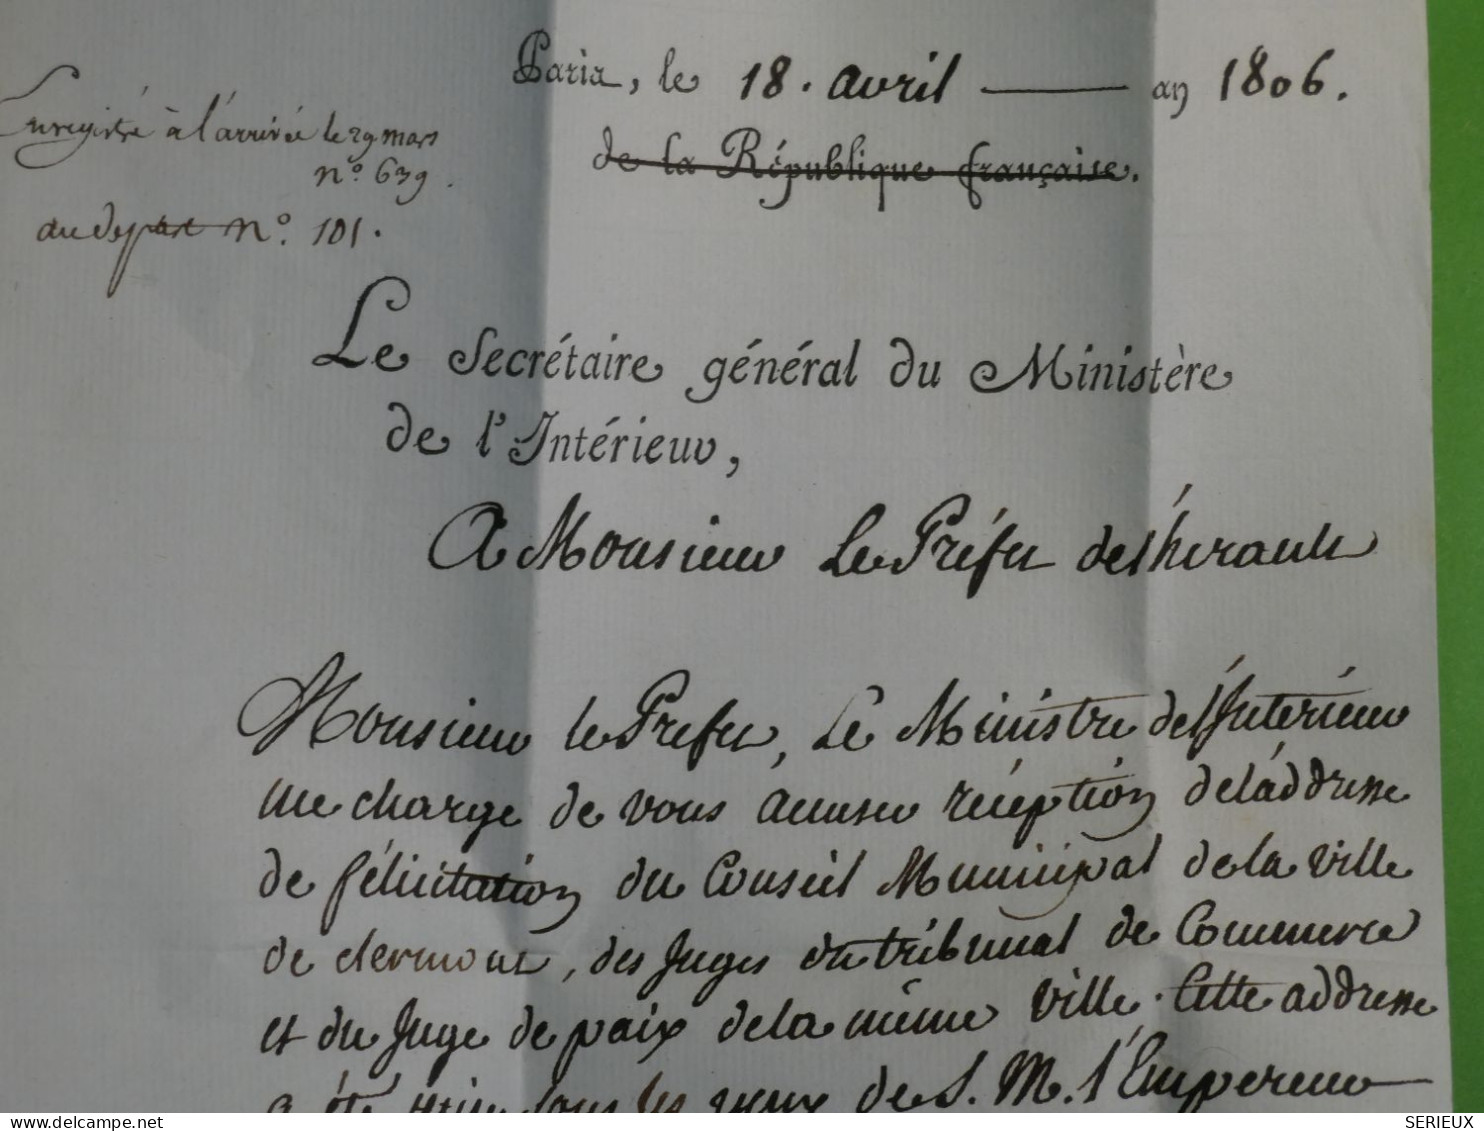 Paris, le 18. avril — an 1806.
de la République française.
Enregistré à l'arrivée le 29 mars
n.° 639.
au depart n.° 101.
Le Secrétaire général du Ministère
de l'Intérieur,
A Monsieur Le Préfet de l'herault
Monsieur le Prefet, Le Ministre de l'Interieur
me charge de vous accuser réception de l'addresse
de félicitation du Conseil Municipal de la ville
de clermont, des Juges du tribunal de Commerce
et du Juge de paix de la même ville. Cette addresse
a été mise sous les yeux de S. M. l'Empereur
SERIEUX